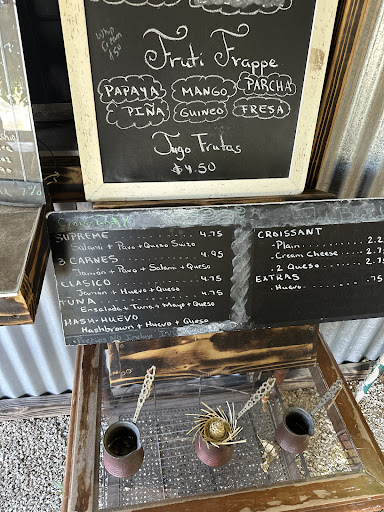 Whip
Cream
.50
Fruti Frappe
PAPAYA
MANGO
PARCHA
PIÑA
GUINEO
FRESA
Jugo Frutas
$4.50
SUPREME 4.75
Salami + Pavo + Queso Suizo
3 CARNES 4.95
Jamón + Pavo + Salami + Queso
CLASICO 4.75
Jamón + Huevo + Queso
TUNA 4.75
Ensalada + Tuna + Mayo + Queso
HASH-HUEVO
Hashbrown + Huevo + Queso
CROISSANT
-Plain 2.2
-Cream Cheese 2.75
-2 Queso 2.75
EXTRAS
-Huevo .75